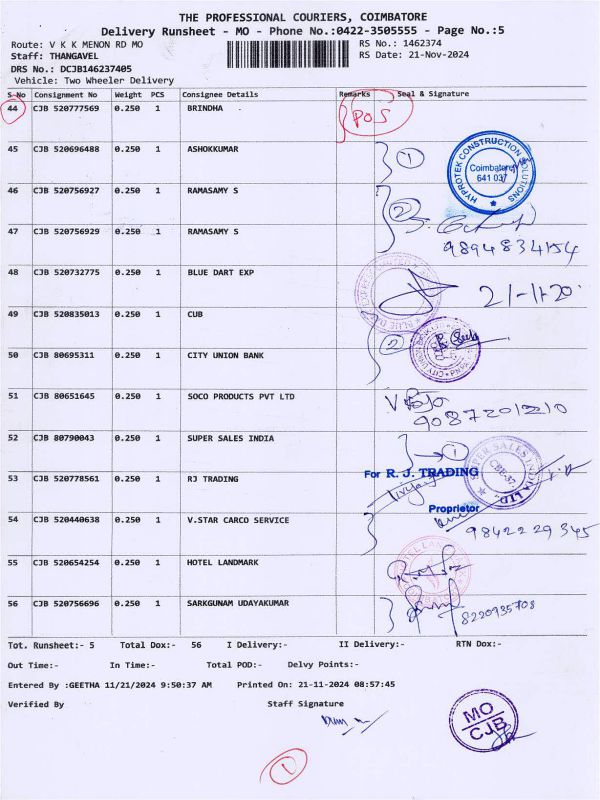 THE PROFESSIONAL COURIERS, COIMBATORE
Delivery Runsheet - MO - Phone No.:0422-3505555 - Page No.:5
Route: V K K MENON RD MO RS No.: 1462374
Staff: THANGAVEL RS Date: 21-Nov-2024
DRS No.: DCJB146237405
Vehicle: Two Wheeler Delivery
S.No Consignment No Weight PCS Consignee Details Remarks Seal & Signature
44 CJB 520777569 0.250 1 BRINDHA POS
45 CJB 520696488 0.250 1 ASHOKKUMAR 1
HYPROTEK CONSTRUCTION SOLUTIONS
Coimbatore
641 037
46 CJB 520756927 0.250 1 RAMASAMY S 2
47 CJB 520756929 0.250 1 RAMASAMY S
9894834154
48 CJB 520732775 0.250 1 BLUE DART EXP 21-11-20
49 CJB 520835013 0.250 1 CUB
50 CJB 80695311 0.250 1 CITY UNION BANK 2
51 CJB 80651645 0.250 1 SOCO PRODUCTS PVT LTD
9087201210
52 CJB 80790043 0.250 1 SUPER SALES INDIA 1
SUPER SALES INDIA LTD.
CBE-37
53 CJB 520778561 0.250 1 RJ TRADING
For R. J. TRADING
Proprietor
54 CJB 520440638 0.250 1 V.STAR CARCO SERVICE
9842229345
55 CJB 520654254 0.250 1 HOTEL LANDMARK
56 CJB 520756696 0.250 1 SARKGUNAM UDAYAKUMAR
8220935708
Tot. Runsheet:- 5 Total Dox:- 56 I Delivery:- II Delivery:- RTN Dox:-
Out Time:- In Time:- Total POD:- Delvy Points:-
Entered By :GEETHA 11/21/2024 9:50:37 AM Printed On: 21-11-2024 08:57:45
Verified By Staff Signature
MO
CJB
1